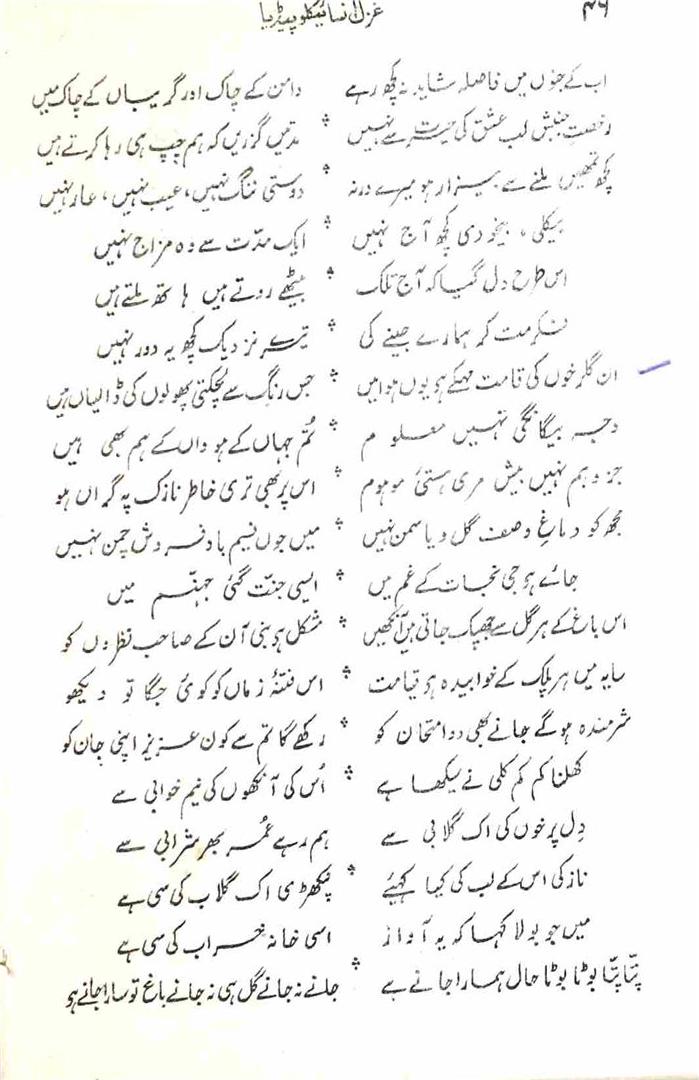 غزل انسائیکلوپیڈیا ۴۶
اب کے جنوں میں فاصلہ شاید نہ کچھ رہے دامن کے چاک اور گریباں کے چاک میں
رخصتِ جنبشِ لب عشق کی حیرت سے نہیں مدتیں گزریں کہ ہم چپ ہی رہا کرتے ہیں
کچھ تمھیں ملنے سے بیزار ہو میرے ورنہ دوستی ننگ نہیں، عیب نہیں، عار نہیں
بیکلی، بیخودی کچھ آج نہیں ایک مدّت سے وہ مزاج نہیں
اس طرح دل گیا کہ آج تلک بیٹھے روتے ہیں ہاتھ ملتے ہیں
فکر مت کر ہمارے جینے کی تیرے نزدیک کچھ یہ دور نہیں
ان گلرخوں کی قامت مہکے ہو یوں ہوا میں جس رنگ سے لچکتی پھولوں کی ڈالیاں ہیں
وجہ بیگانگی نہیں معلوم تُم جہاں کے ہو واں کے ہم بھی ہیں
جز وہم نہیں بیش مری ہستیٔ موہوم اس پر بھی تری خاطر نازک پہ گراں ہو
مجھ کو دماغِ وصفِ گل و یاسمن نہیں میں جوں نسیم باد فروش چمن نہیں
جائے ہو جی نجات کے غم میں ایسی جنّت گئی جہنّم میں
اس باغ کے ہر گل سے چپک جاتی ہیں آنکھیں مشکل ہو بنی آن کے صاحب نظروں کو
سایہ میں ہر پلک کے خوابیدہ ہو قیامت اس فتنۂ زماں کو کوئی جگا تو دیکھو
شرمندہ ہو گے جانے بھی دو امتحان کو رکھے گا تم سے کون عزیز اپنی جان کو
کھلنا کم کم کلی نے سیکھا ہے اُس کی آنکھوں کی نیم خوابی سے
دِل پر خوں کی اک گلابی سے ہم رہے عُمر بھر شرابی سے
نازکی اس کے لب کی کیا کہئے پنکھڑی اک گلاب کی سی ہے
میں جو بولا کہا کہ یہ آواز اسی خانہ خراب کی سی ہے
پتّا پتّا بوٹا بوٹا حال ہمارا جانے ہے جانے نہ جانے گل ہی نہ جانے باغ تو سارا جانے ہو